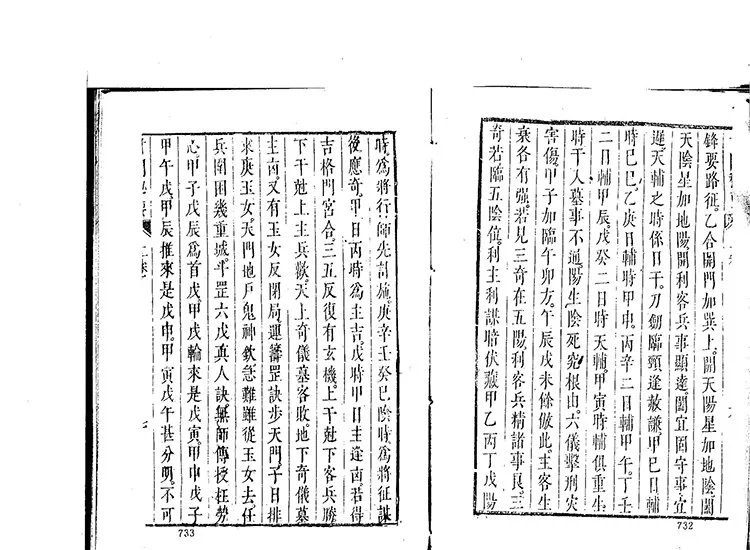 鋒要路征。乙合開門加巽上。開天陽星加地陰闔
天陰星加地陽開利客兵事顯達。闔宜固守事宜
遲。天輔之時係日干。刀劒臨頭逢赦謙。甲巳日輔
時巳巳。乙庚日輔時甲申。丙辛二日輔甲午。丁壬
二日輔甲辰。戊癸二日時天輔。甲寅時輔俱重生
時干入墓事不通。陽生陰死究根山。六儀擊刑灾
害傷。甲子加臨午卯方。午辰戌未餘倣此。主客生
乘各有强。若見三奇在五陽。利客兵精諸事良。三
奇若臨五陰位。利主利謀暗伏藏。甲乙丙丁戊陽
732
時爲將行師先討施。庚辛壬癸巳陰時爲將征謀
後應奇。甲日丙時爲主吉。戊時甲日主逢凶。若得
吉格門宮合。三五反復有玄機。上干尅下客兵勝
下干尅上主兵歡。天上奇儀墓客敗。地下奇儀墓
主凶。又有玉女反閉局。運籌罡訣步天門。子日排
來庚玉女。天門地戶鬼神欽。急難雖從玉女去。任
兵圍困幾重城。斗罡六戊真人訣。無師傳授枉勞
心。甲子戊辰爲首戌。甲戌輪來是戊寅。甲申戊子
甲午戊。甲辰推來是戊申。甲寅戊午甚分明。不可
七
733